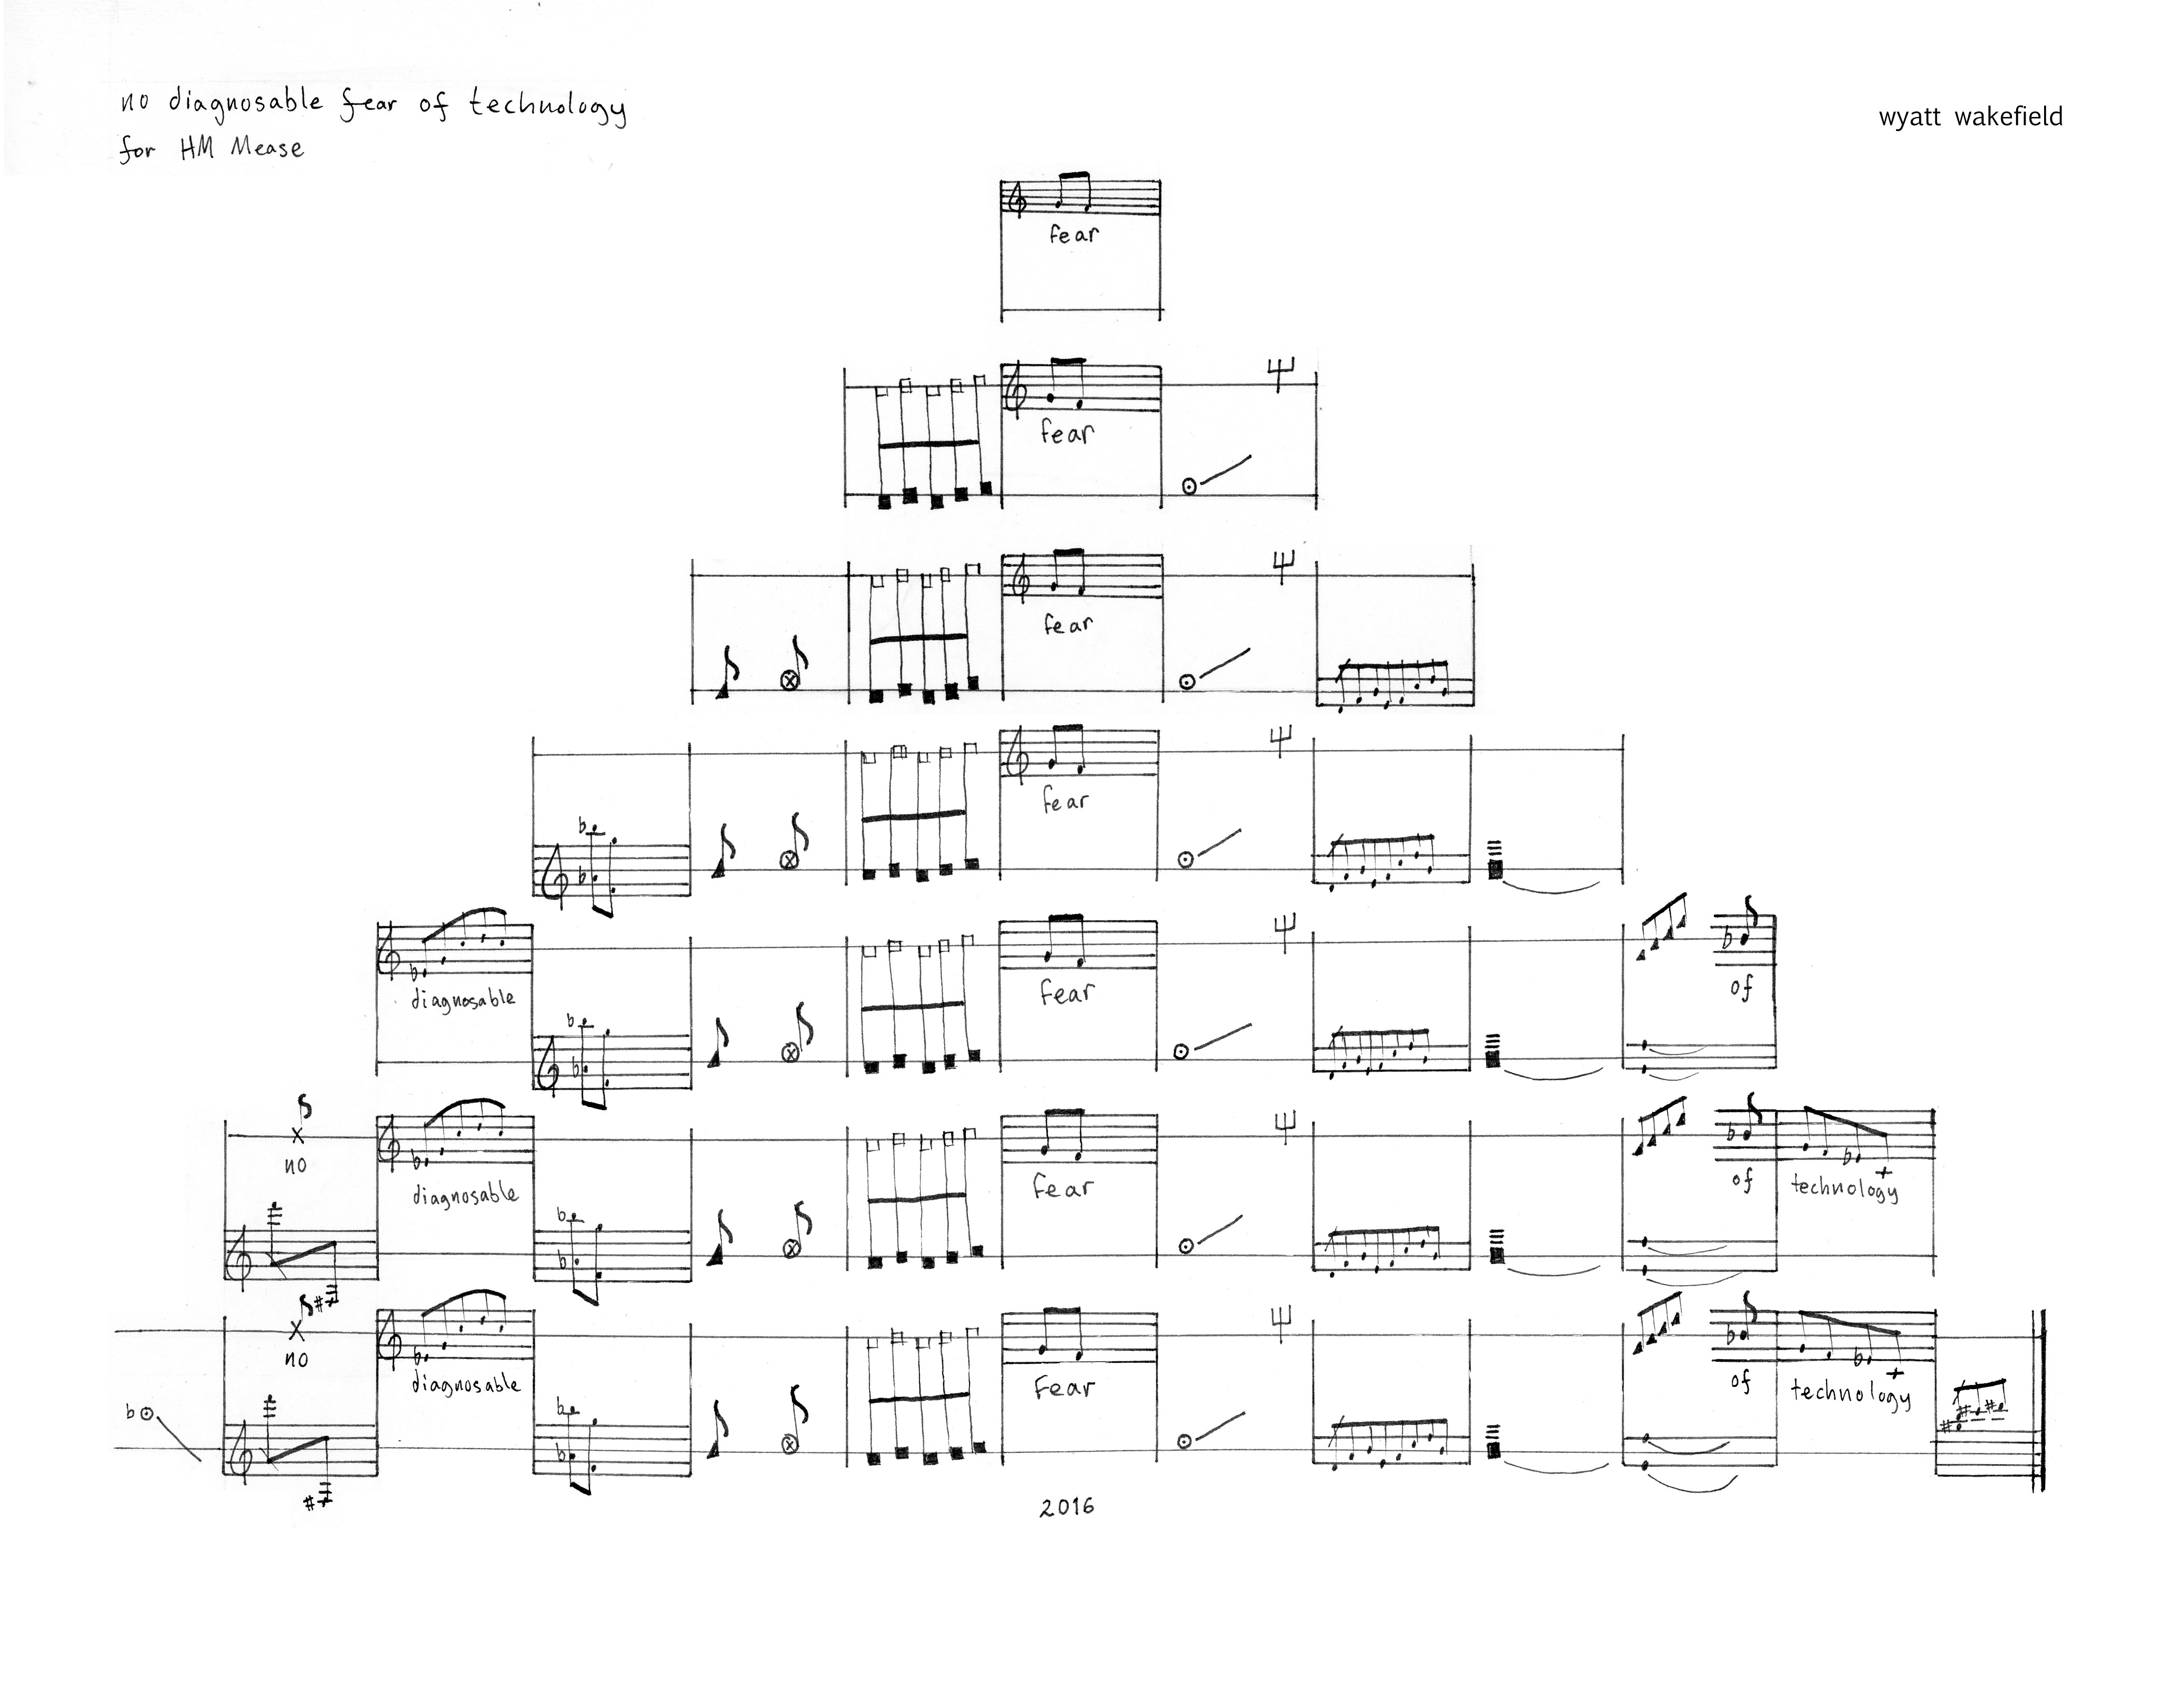 no diagnosable fear of technology
wyatt wakefield
for HM Mease
fear
fear
fear
fear
diagnosable fear of
no diagnosable fear of technology
no diagnosable Fear of technology
2016